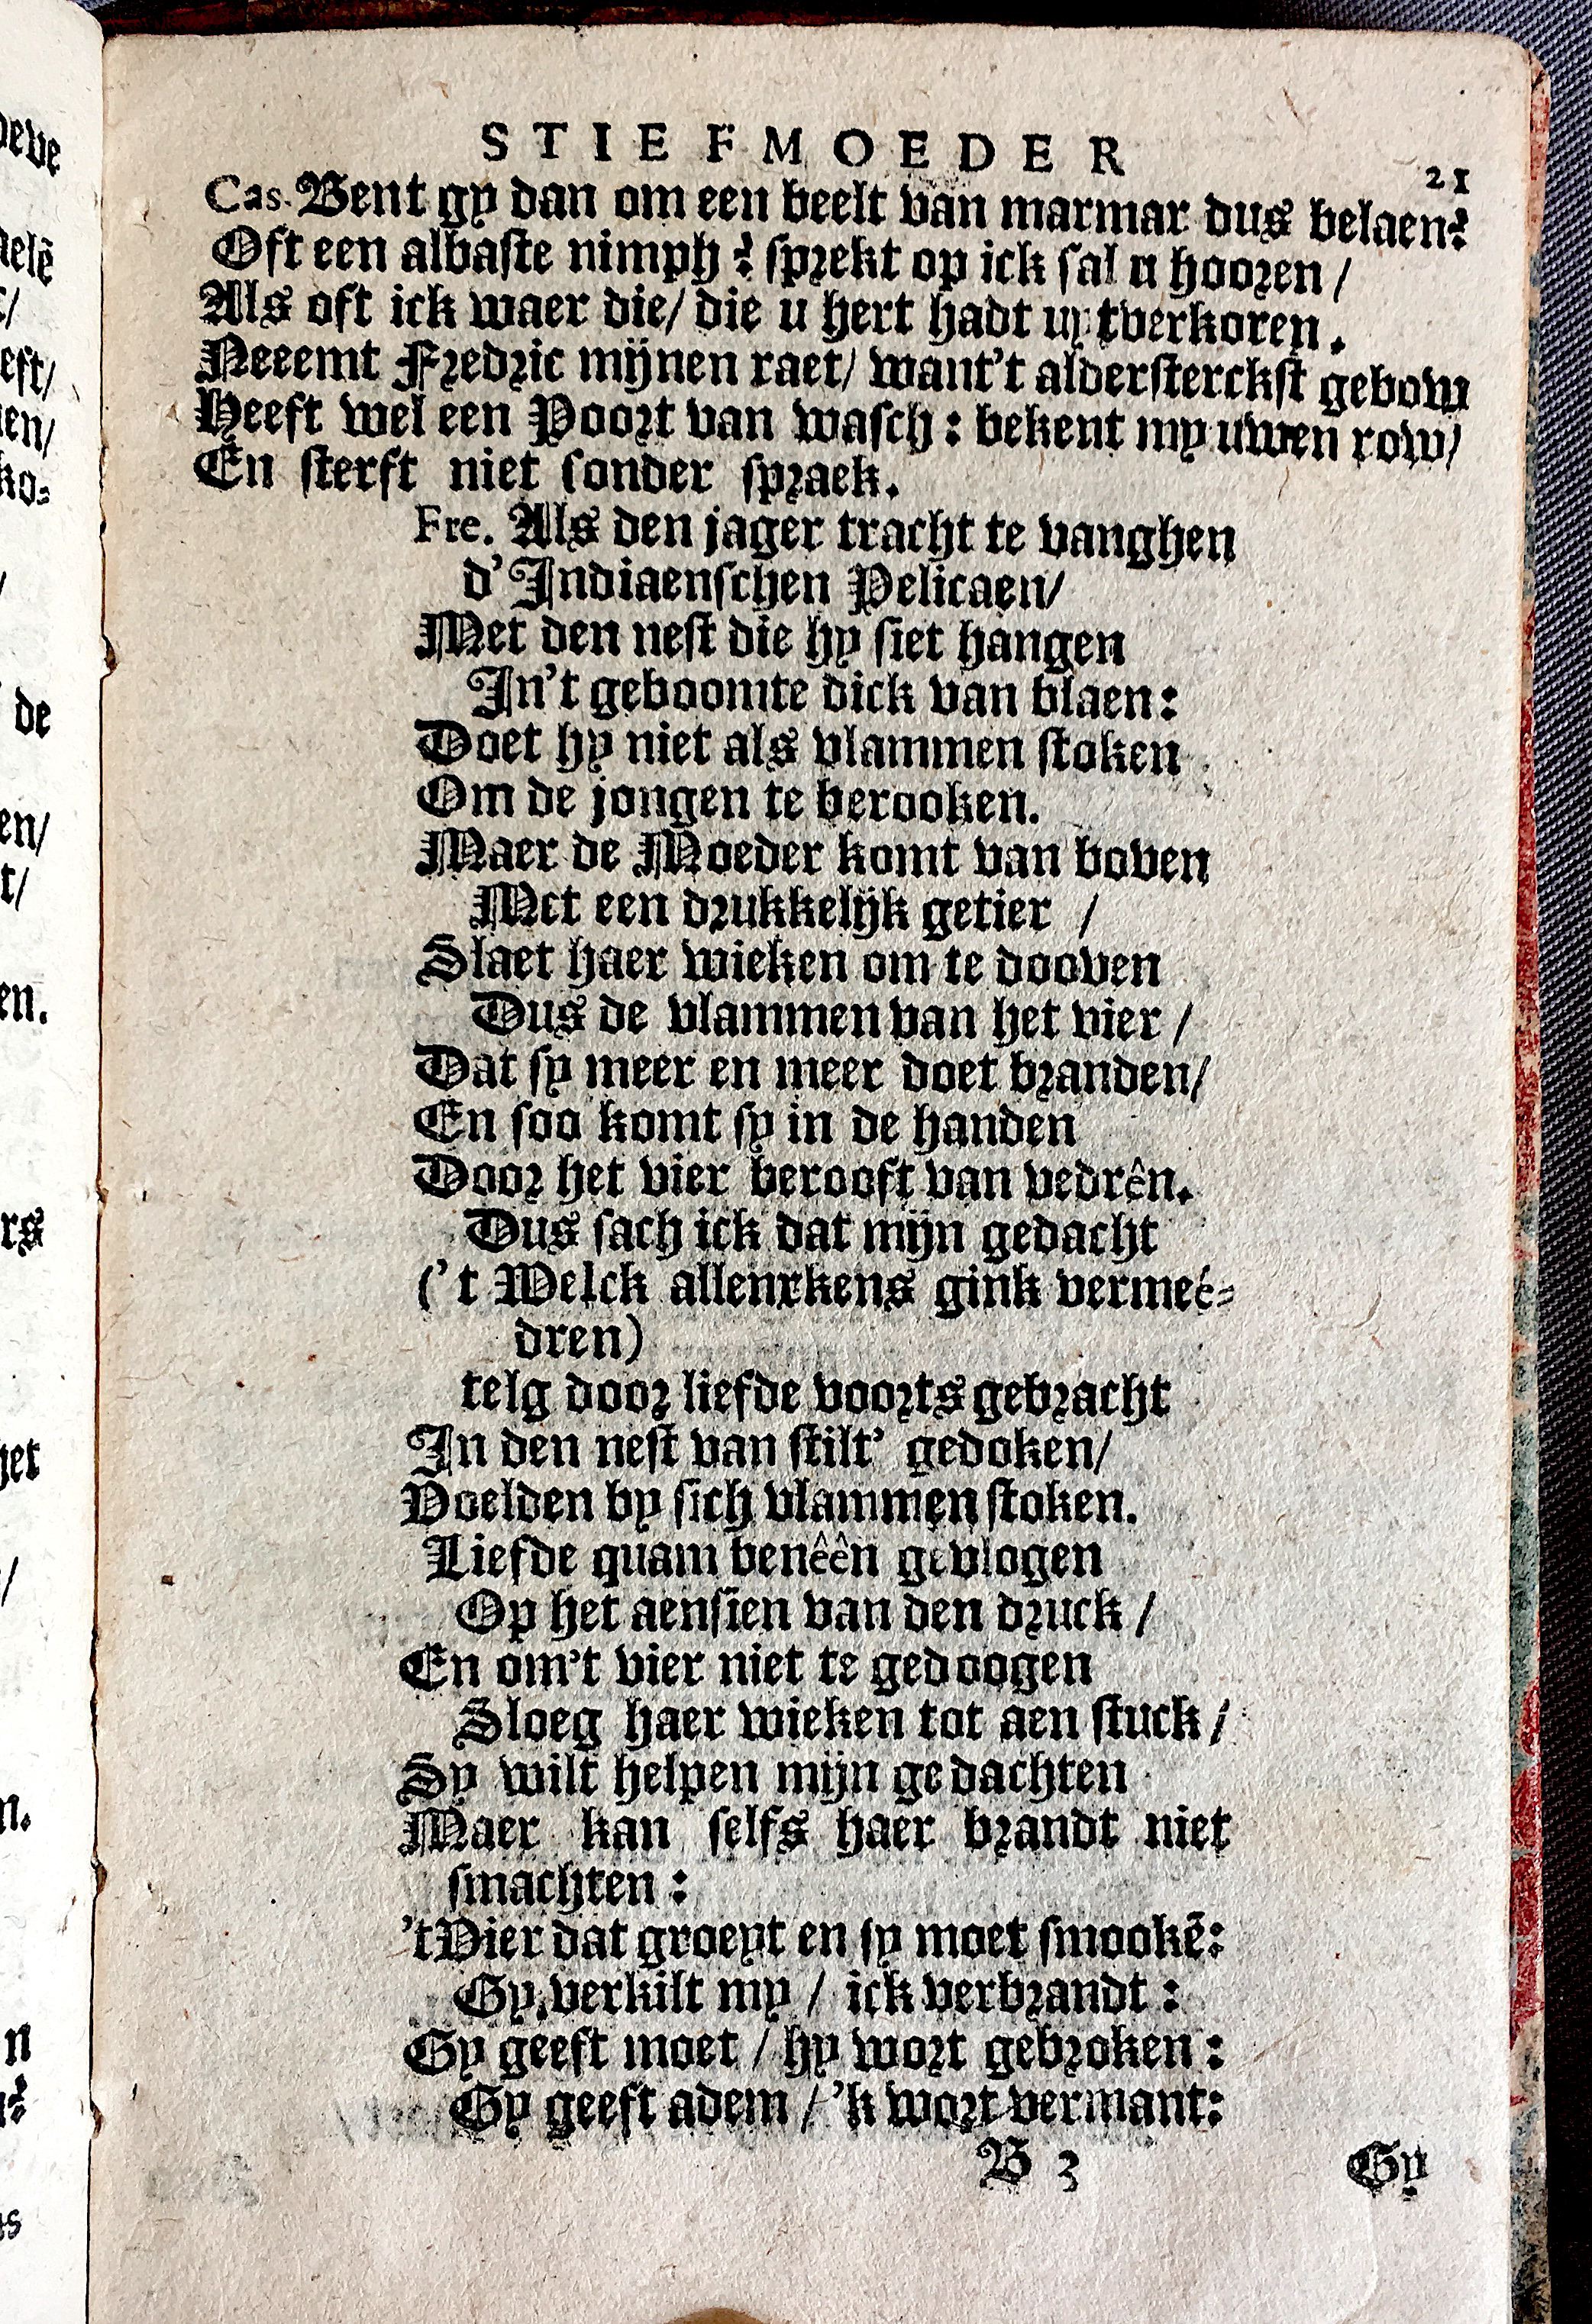 STIEFMOEDER
21
Cas. Bent gy dan om een beelt van marmar dus belaen?
Oft een albaste nimph? sprekt op ick sal u hooren /
Als oft ick waer die/ die u hert hadt uytverkoren.
Neeemt Fredric mijnen raet/ want't aldersterckst gebouw
Heeft wel een Poort van wasch: bekent my uwen row/
En sterft niet sonder spraek.
Fre. Als den jager tracht te vanghen
d'Indiaenschen Pelicaen/
Met den nest die hy siet hangen
In't geboomte dick van blaen:
Doet hy niet als vlammen stoken
Om de jongen te berooken.
Maer de Moeder komt van boven
Met een drukkelijk getier /
Slaet haer wieken om te dooven
Dus de vlammen van het vier /
Dat sy meer en meer doet branden/
En soo komt sy in de handen
Door het vier berooft van vedrên.
Dus sach ick dat mijn gedacht
('t Welck allenrkens gink vermeé-
dren)
telg door liefde voorts gebracht
In den nest van stilt' gedoken/
Voelden by sich vlammen stoken.
Liefde quam benêên gevlogen
Op het aensien van den druck /
En om't vier niet te gedoogen
Sloeg haer wieken tot aen stuck /
Sy wilt helpen mijn gedachten
Maer kan selfs haer brandt niet
smachten:
't Vier dat groeyt en sy moet smookē:
Gy, verkilt my / ick verbrandt:
Gy geeft moet / hy wort gebroken:
Gy geeft adem / 'k wort vermant:
B 3
Gy